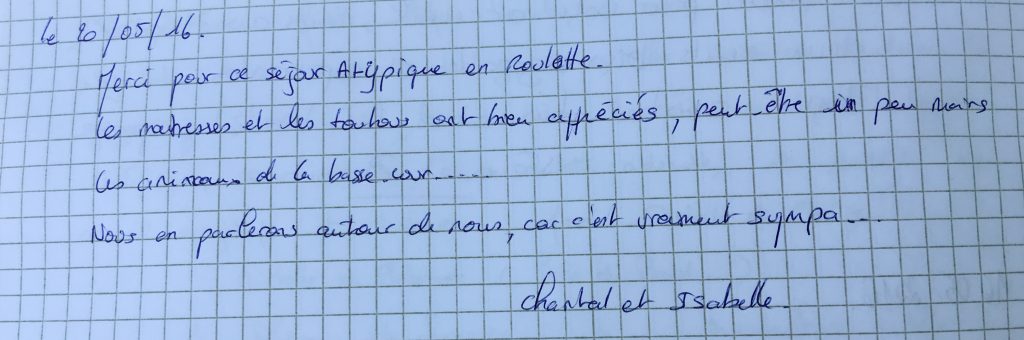 le 20/05/16.
Merci pour ce séjour Atypique en Roulotte.
Les maîtresses et les toutous ont bien appréciés, peut-être un peu moins
les animaux de la basse-cour.....
Nous en parlerons autour de nous, car c'est vraiment sympa....
Chantal et Isabelle.